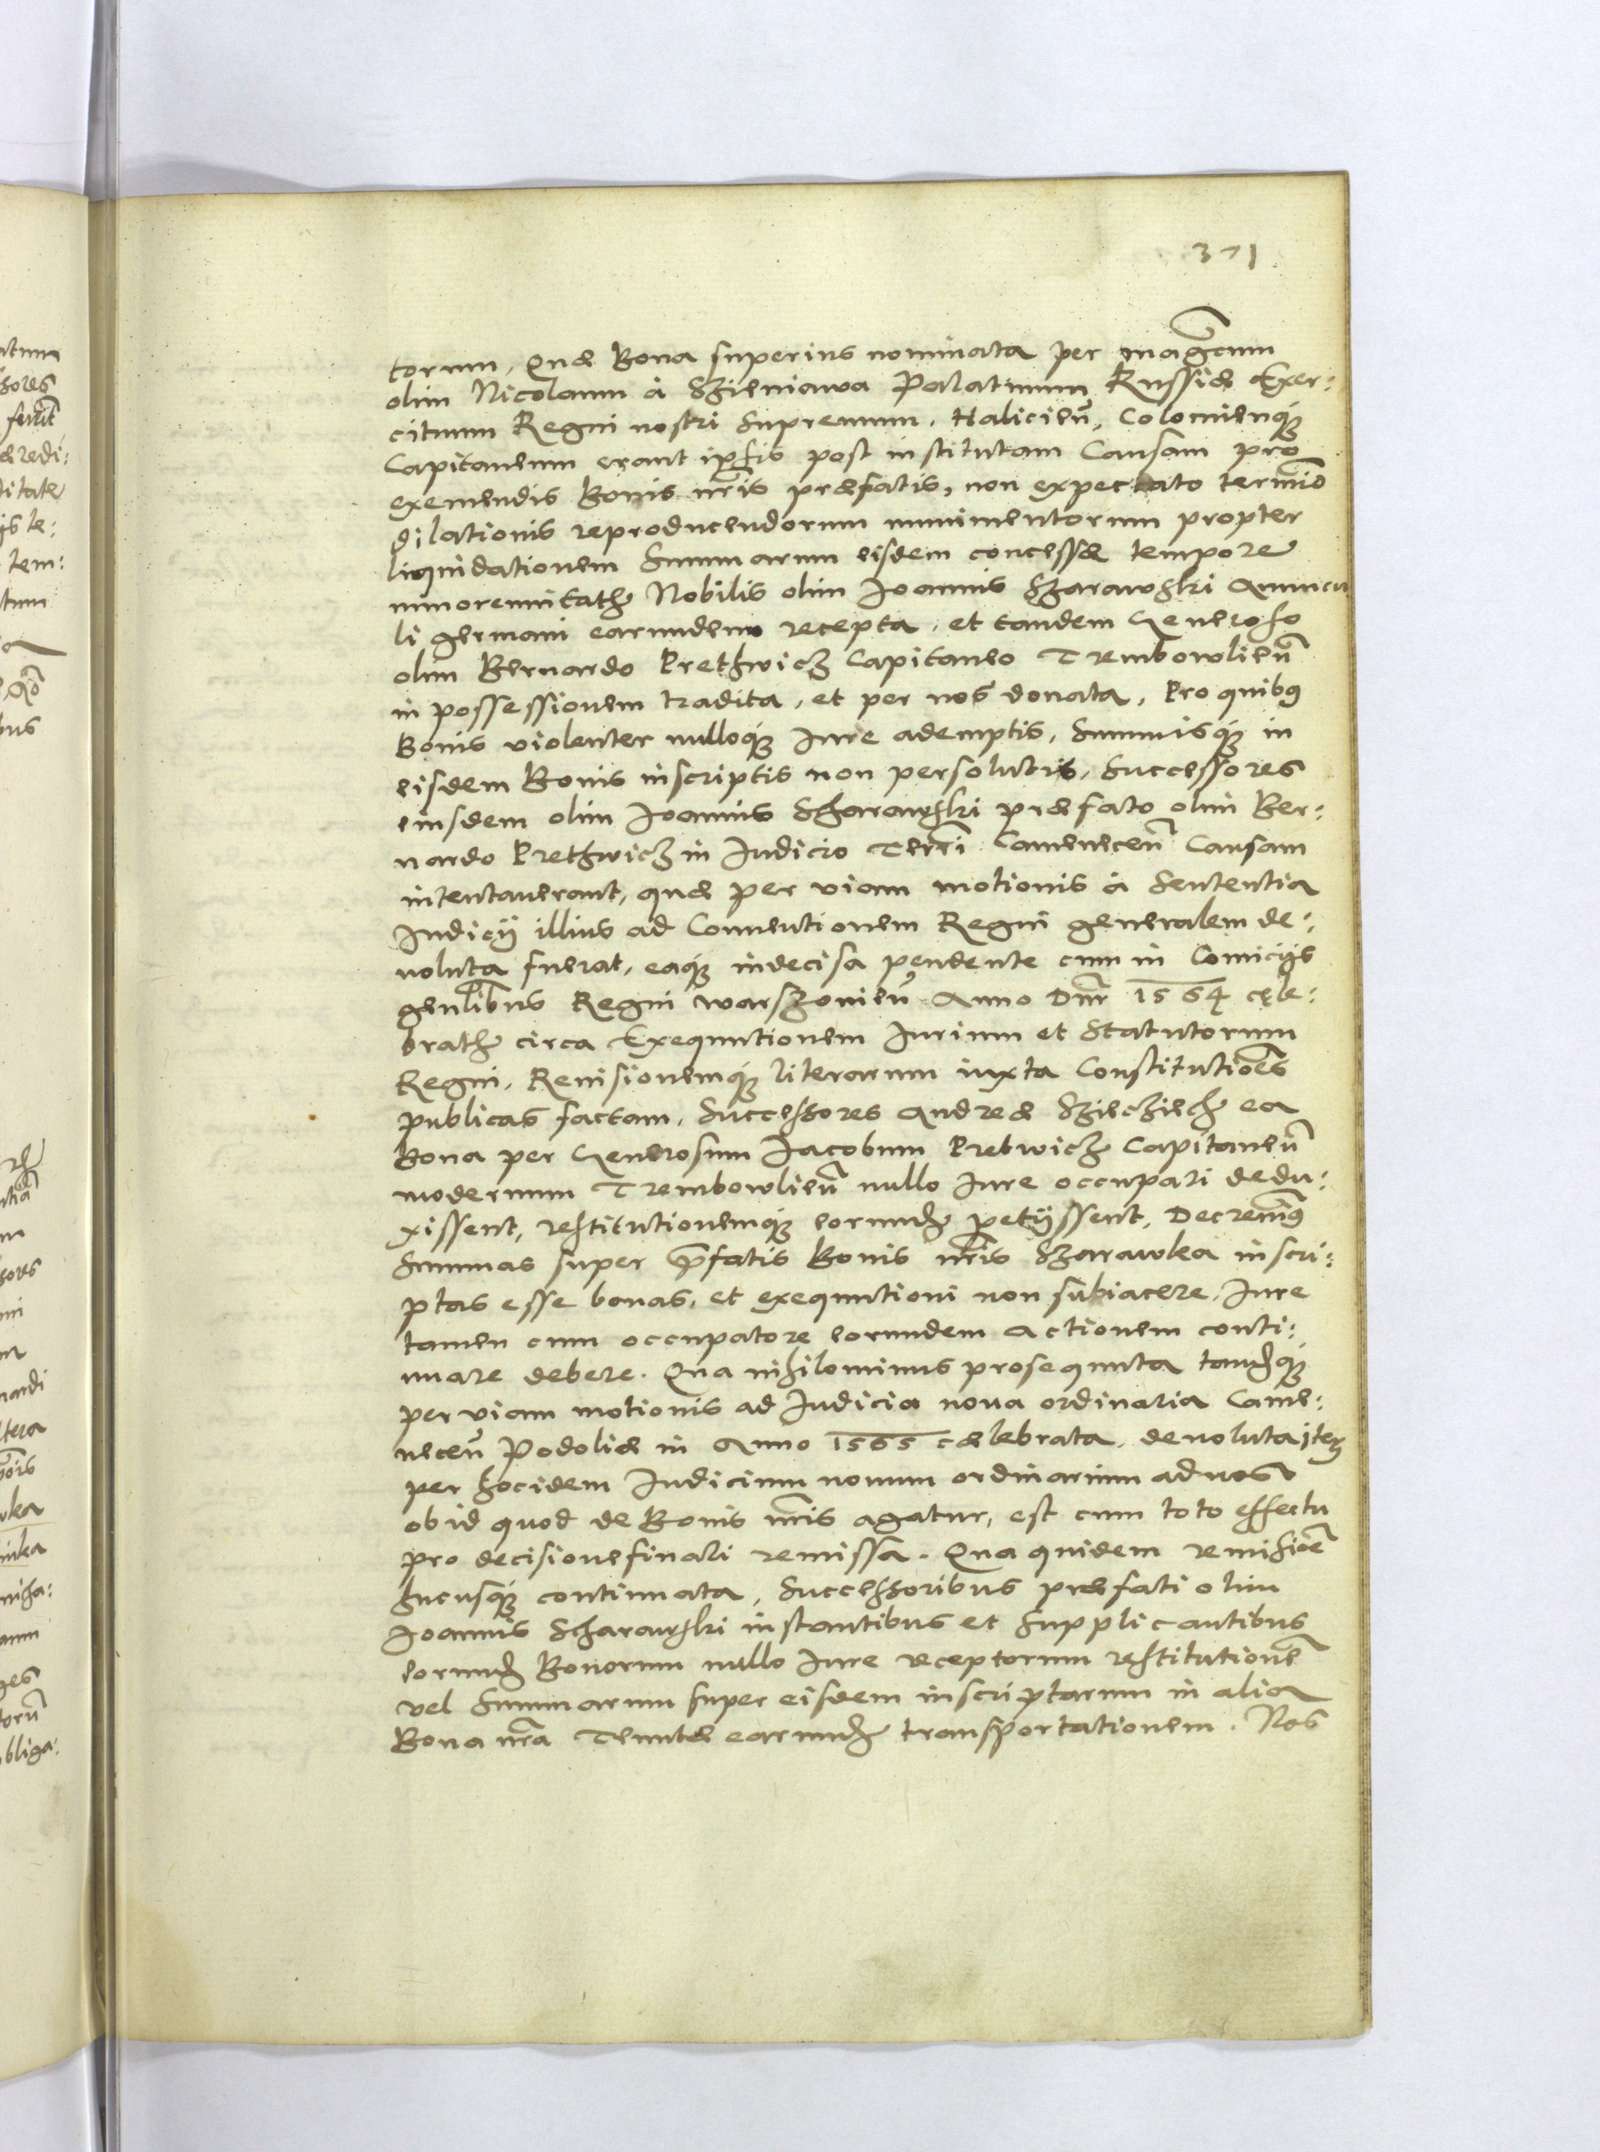 371
torum, Quæ Bona superius nominata per magcum
olim Nicolaum à Szieniawa Palatinum Russiæ Exer:
cituum Regni nostri Supremum, Halicien̄, Colomienq́ꝫ
Capitaneum erant ipsis post institutam Causam pro
exemendis Bonis nr̄is præfatis, non expectato termīo
dilationis reproducendorum munimentorum propter
liquidationem Summarum eisdem concessæ tempore
minorennitatꝭ Nobilis olim Joannis Szarawski Auuncu
li germani earundem recepta, et tandem Generoso
olim Bernardo Prethwicz Capitaneo Trembowlien̄
in possessionem tradita, et per nos donata, Pro quibꝰ
Bonis violenter nulloq́ꝫ Jure ademptis, Summisq́ꝫ in
eisdem Bonis inscriptis non persolutis, Successores
eiusdem olim Joannis Scharawski præfato olim Ber:
nardo Prethwicz in Judicio Terrī Camenecen̄ Causam
intentauerant, quæ per viam motionis à Sententia
Judicij illius ad Conuentionem Regni generalem de:
uoluta fuerat, eaq́ꝫ indecisa pendente cum in Comicijs
gen̄libus Regni warszouien̄ Anno Dn̄i 1564 cęle:
bratꝭ circa Exequutionem Jurium et Statutorum
Regni, Reuisionemq́ꝫ literarum iuxta Constitutiōes
publicas factam, Successores Andreæ ea
Bona per Generosum Jacobum Pretwicz Capitaneū
modernum Trembowlien̄ nullo Jure occupari dedu:
xissent, restitutionemq́ꝫ eorundꝭ petijssent, Decreuimꝰ
Summas super p̄fatis Bonis nr̄is Szarawka inscri:
ptas esse bonas, et exequutioni non subiacere, Jure
tamen cum occupatore eorundem Actionem conti:
nuare debere. Qua nihilominus prosequuta tandēq́ꝫ
per viam motionis ad Judicia noua ordinaria Came:
necen̄ Podoliæ in Anno 1565 cælebrata, deuoluta iteꝝ
per hocidem Judicium nouum ordinarium ad nos
ob id quod de Bonis nr̄is agatur, est cum toto effectu
pro decisione finali remissa. Qua quidem remissiōe
hucusq́ꝫ continuata, Successoribus præfati olim
Joannis Scharawski instantibus et Supplicantibus
eorundꝭ Bonorum nullo Jure receptorum restitutionē
vel Summarum super eisdem inscriptarum in alia
Bona nr̄a Tenutæ earundꝭ transportationem. Nos